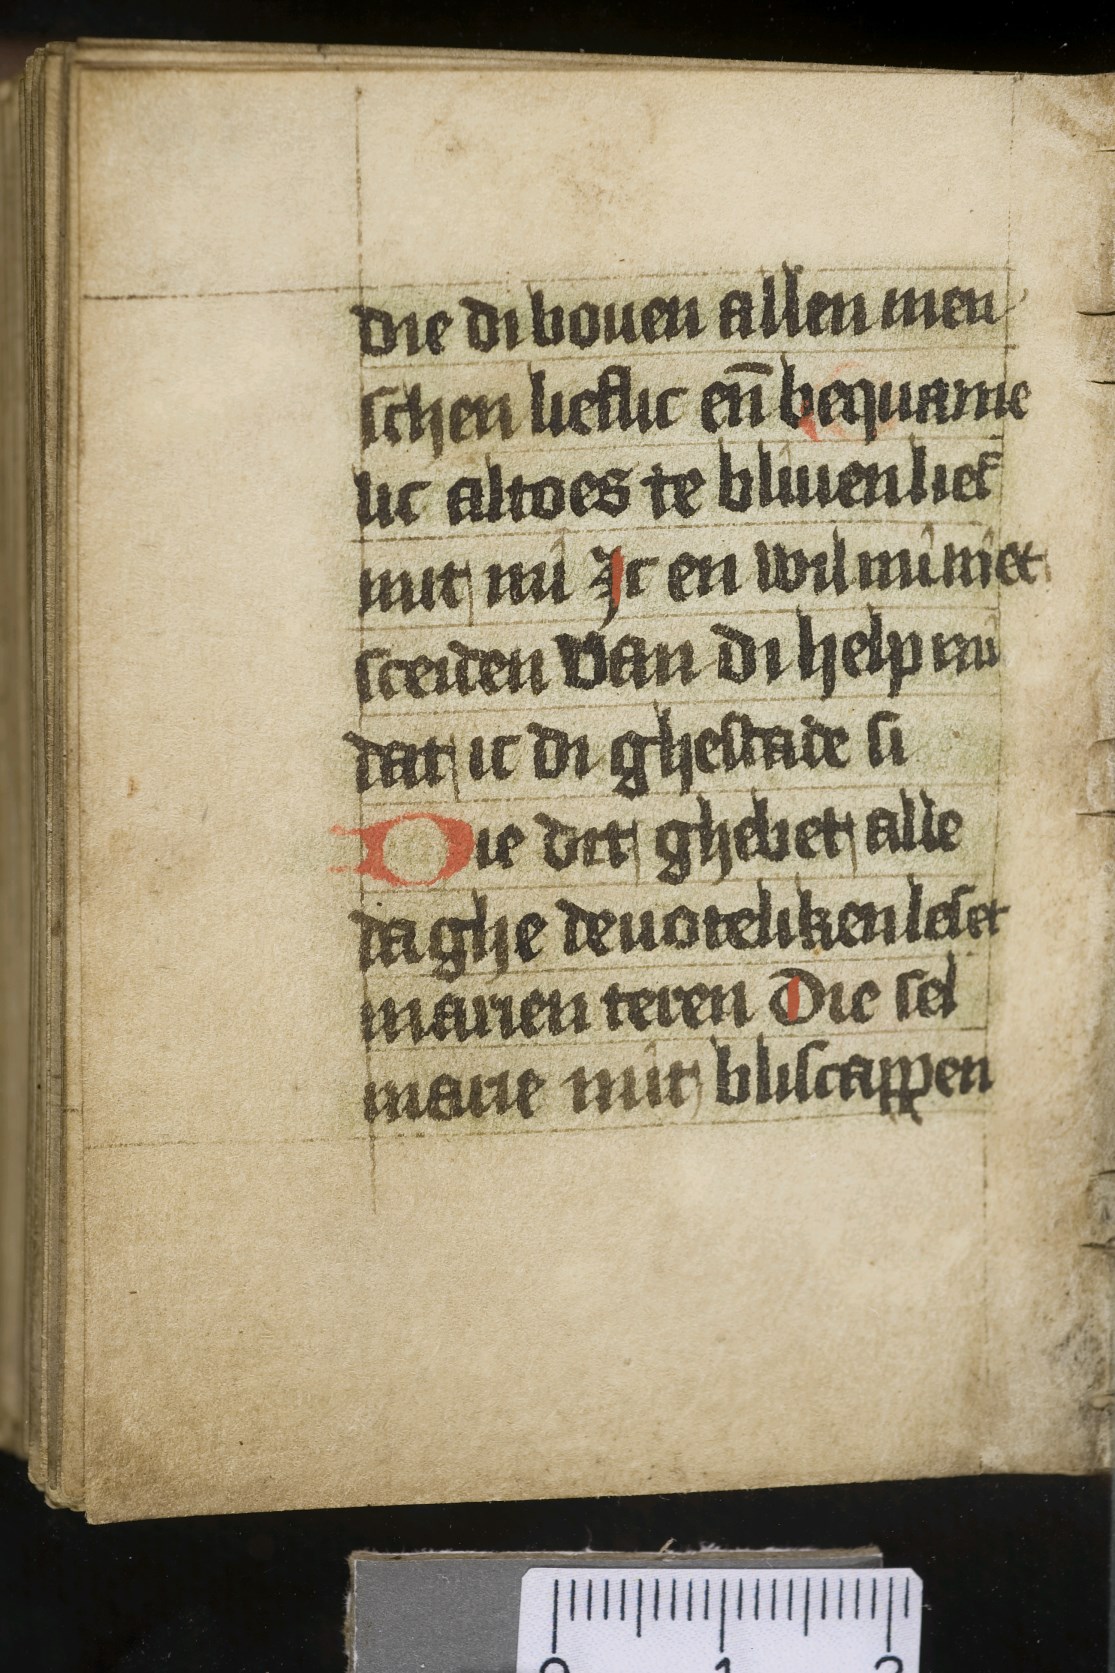 die di bouen allen men
schen lieflic en̄ bequame
lic altoes te bliuen lief
mit mi Ic en wil mi niet
sceiden van di help mi
dat ic di ghestade si
Die dit ghebet alle
daghe deuoteliken leset
marien teren Die sel
marie mit bliscappen
0 1 2